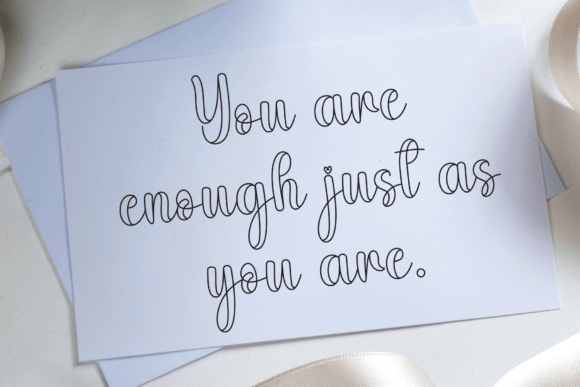 You are
enough just as
you are.